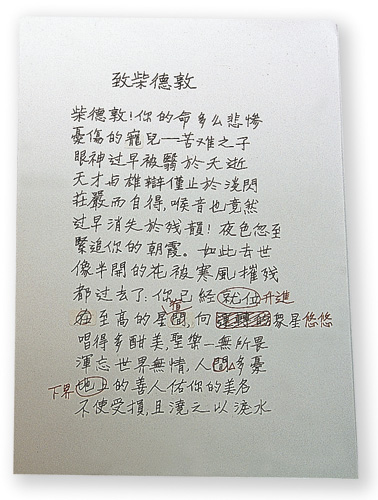 致柴德敦
柴德敦!你的命多么悲慘
憂傷的寵兒——苦难之子
眼神过早被翳於夭逝
天才与雄辯僅止於淡閃
莊嚴而自得,喉音也竟然
过早消失於残韻!夜色忽至
緊追你的朝霞。如此去世
像半開的花被寒風摧残
都过去了:你已經就位升進
宿
在至高的星間,向眾星悠悠
唱得多甜美聖樂—無所累
渾忘世界無情,人間多憂
下界地上的善人佑你的美名
不使受損,且澆之以淚水